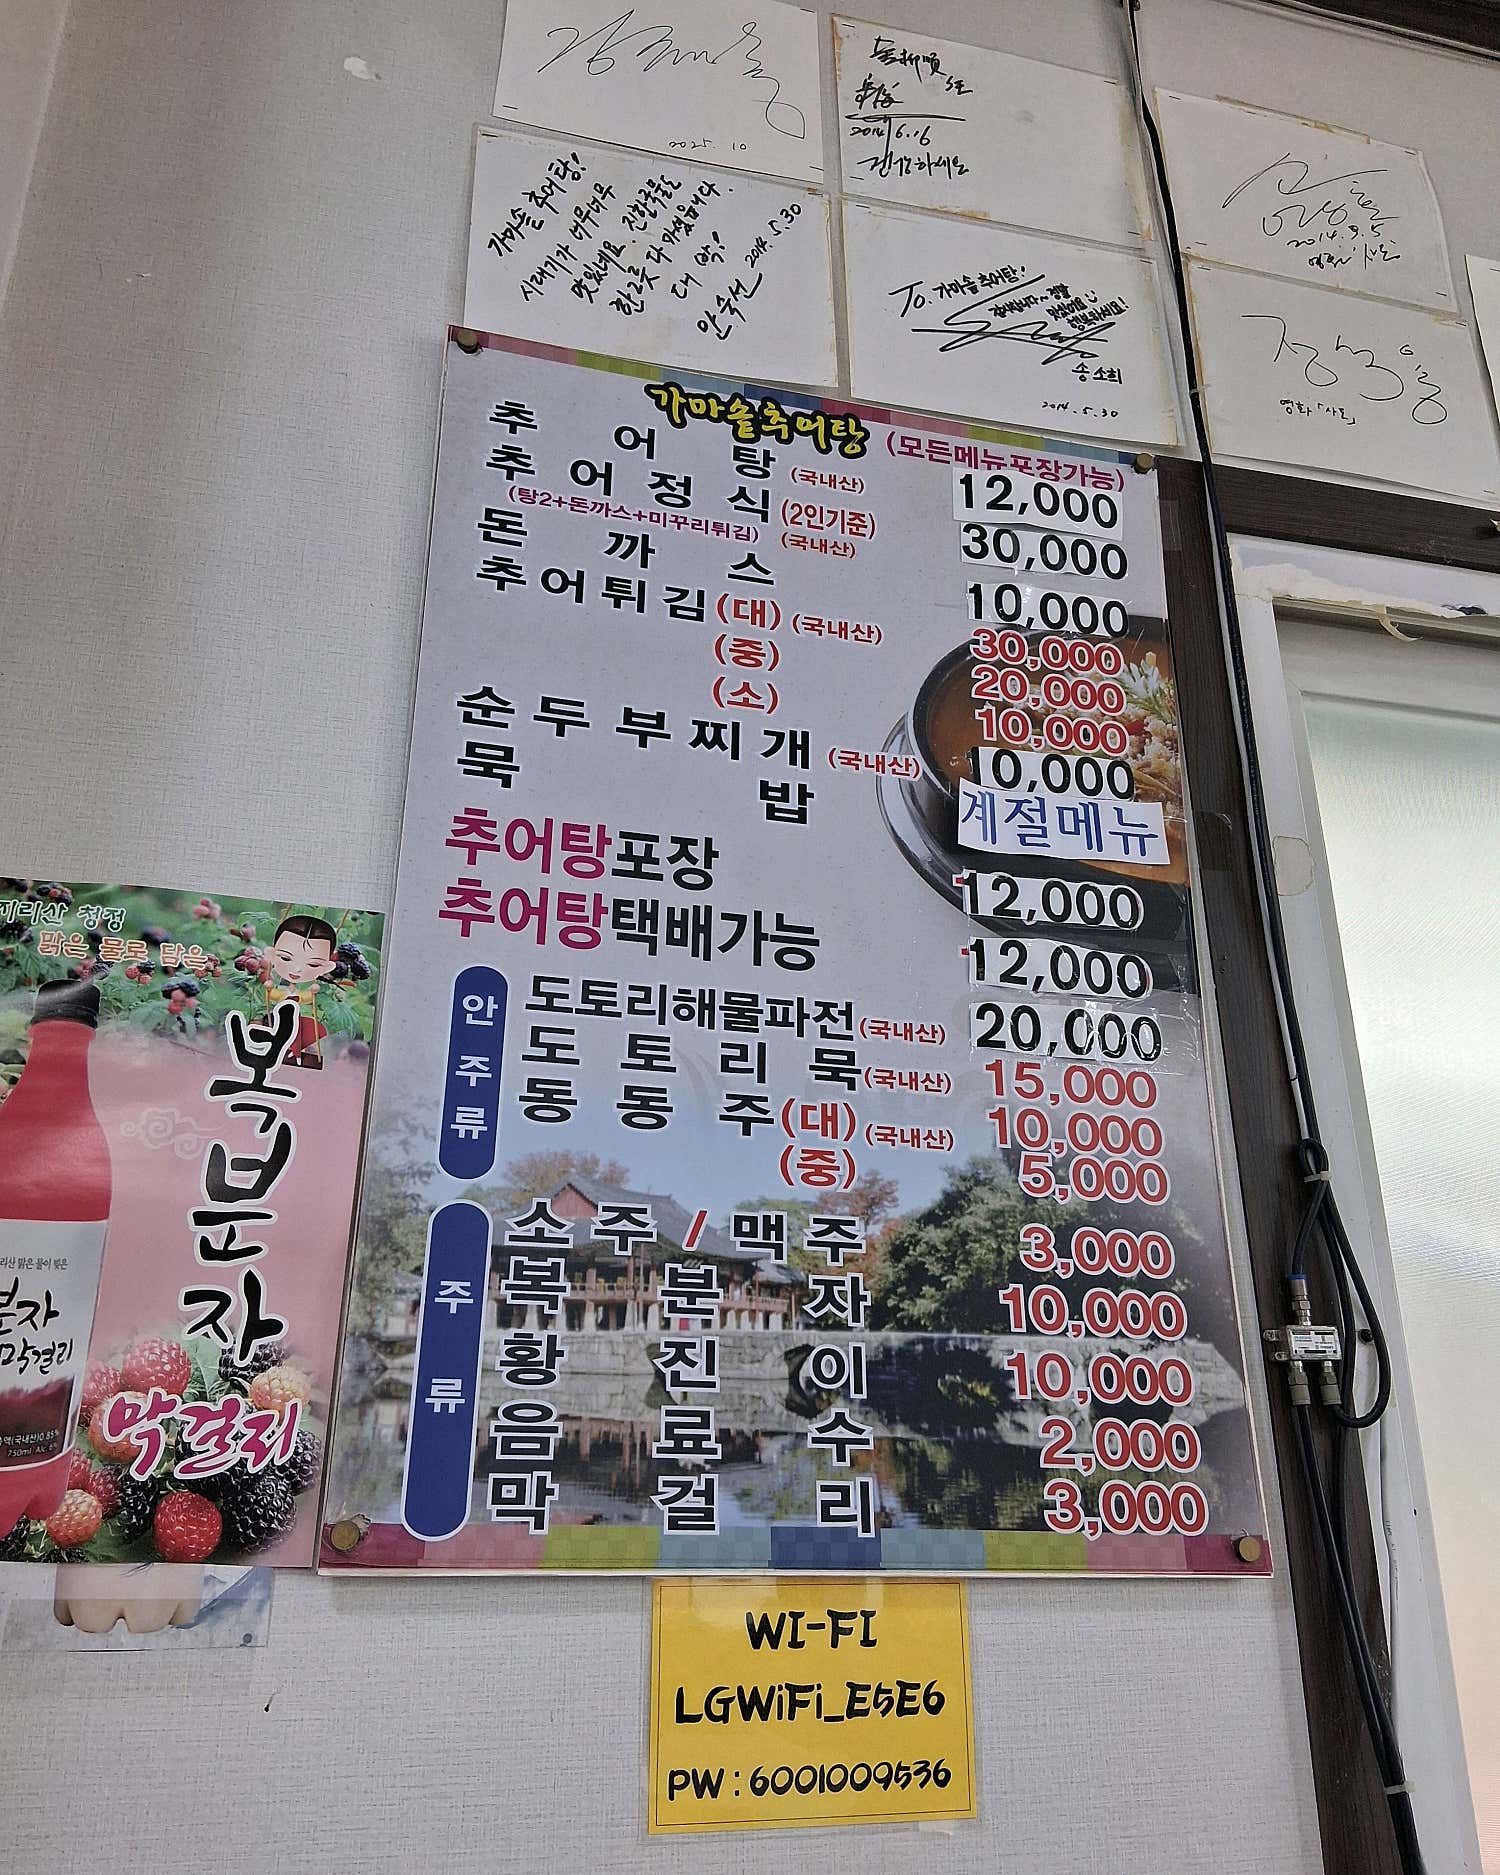 2025. 10
2014. 6. 16
건강하세요
가마솥 추어탕!
시래기가 너무너무
맛있네요. 진한국물도
한그릇 다 마셨습니다.
대 박!
안숙선 2014. 5. 30
To. 가마솥 추어탕!
감사합니다~ 정말
맛있어요
행복하세요!
송소희
2014. 5. 30
2014. 9. 5
영화「사도」
가마솥추어탕 (모든메뉴포장가능)
추어탕 (국내산) 12,000
추어정식 (2인기준) 30,000
(탕2+돈까스+미꾸리튀김) (국내산)
돈까스 10,000
추어튀김 (대) (국내산) 30,000
(중) 20,000
(소) 10,000
순두부찌개 (국내산) 10,000
묵밥 계절메뉴
추어탕포장 12,000
추어탕택배가능 12,000
안주류
도토리해물파전 (국내산) 20,000
도토리묵 (국내산) 15,000
동동주 (대) (국내산) 10,000
(중) 5,000
주류
소주 / 맥주 3,000
복분자 10,000
황진이 10,000
음료수 2,000
막걸리 3,000
지리산 청정
맑은 물로 담은
복분자
막걸리
리산 맑은 물이 빚은
분자
막걸리
750ml Alc 6%
WI-FI
LGWiFi_E5E6
PW : 6001009536